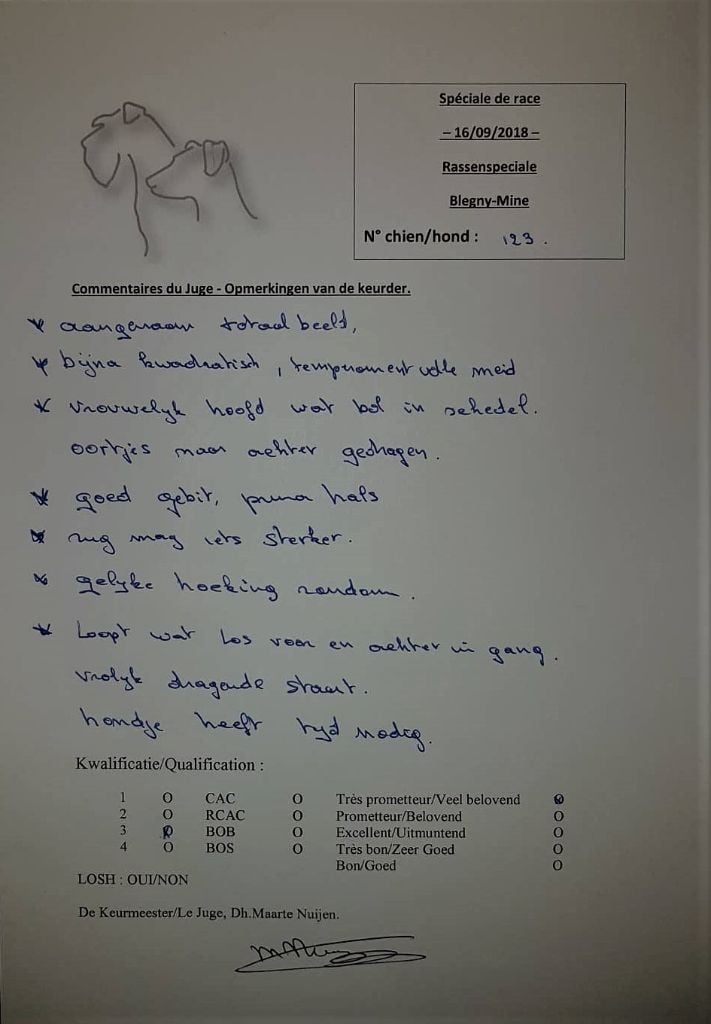 Spéciale de race
– 16/09/2018 –
Rassenspeciale
Blegny-Mine
N° chien/hond : 123.
Commentaires du Juge - Opmerkingen van de keurder.
* aangenaam totaal beeld,
* bijna kwadratisch, temprament volle meid
* vrouwelyk hoofd wat bol in schedel.
oortjes naar achter gedragen.
* goed gebit, prima hals
* rug mag iets sterker.
* gelyke hoeking rondom.
* Loopt wat los voor en achter in gang.
vrolyk dragende staart.
hondje heeft tyd nodig.
Kwalificatie/Qualification :
1 O CAC O Très prometteur/Veel belovend O
2 O RCAC O Prometteur/Belovend O
3 O BOB O Excellent/Uitmuntend O
4 O BOS O Très bon/Zeer Goed O
Bon/Goed O
LOSH : OUI/NON
De Keurmeester/Le Juge, Dh.Maarte Nuijen.